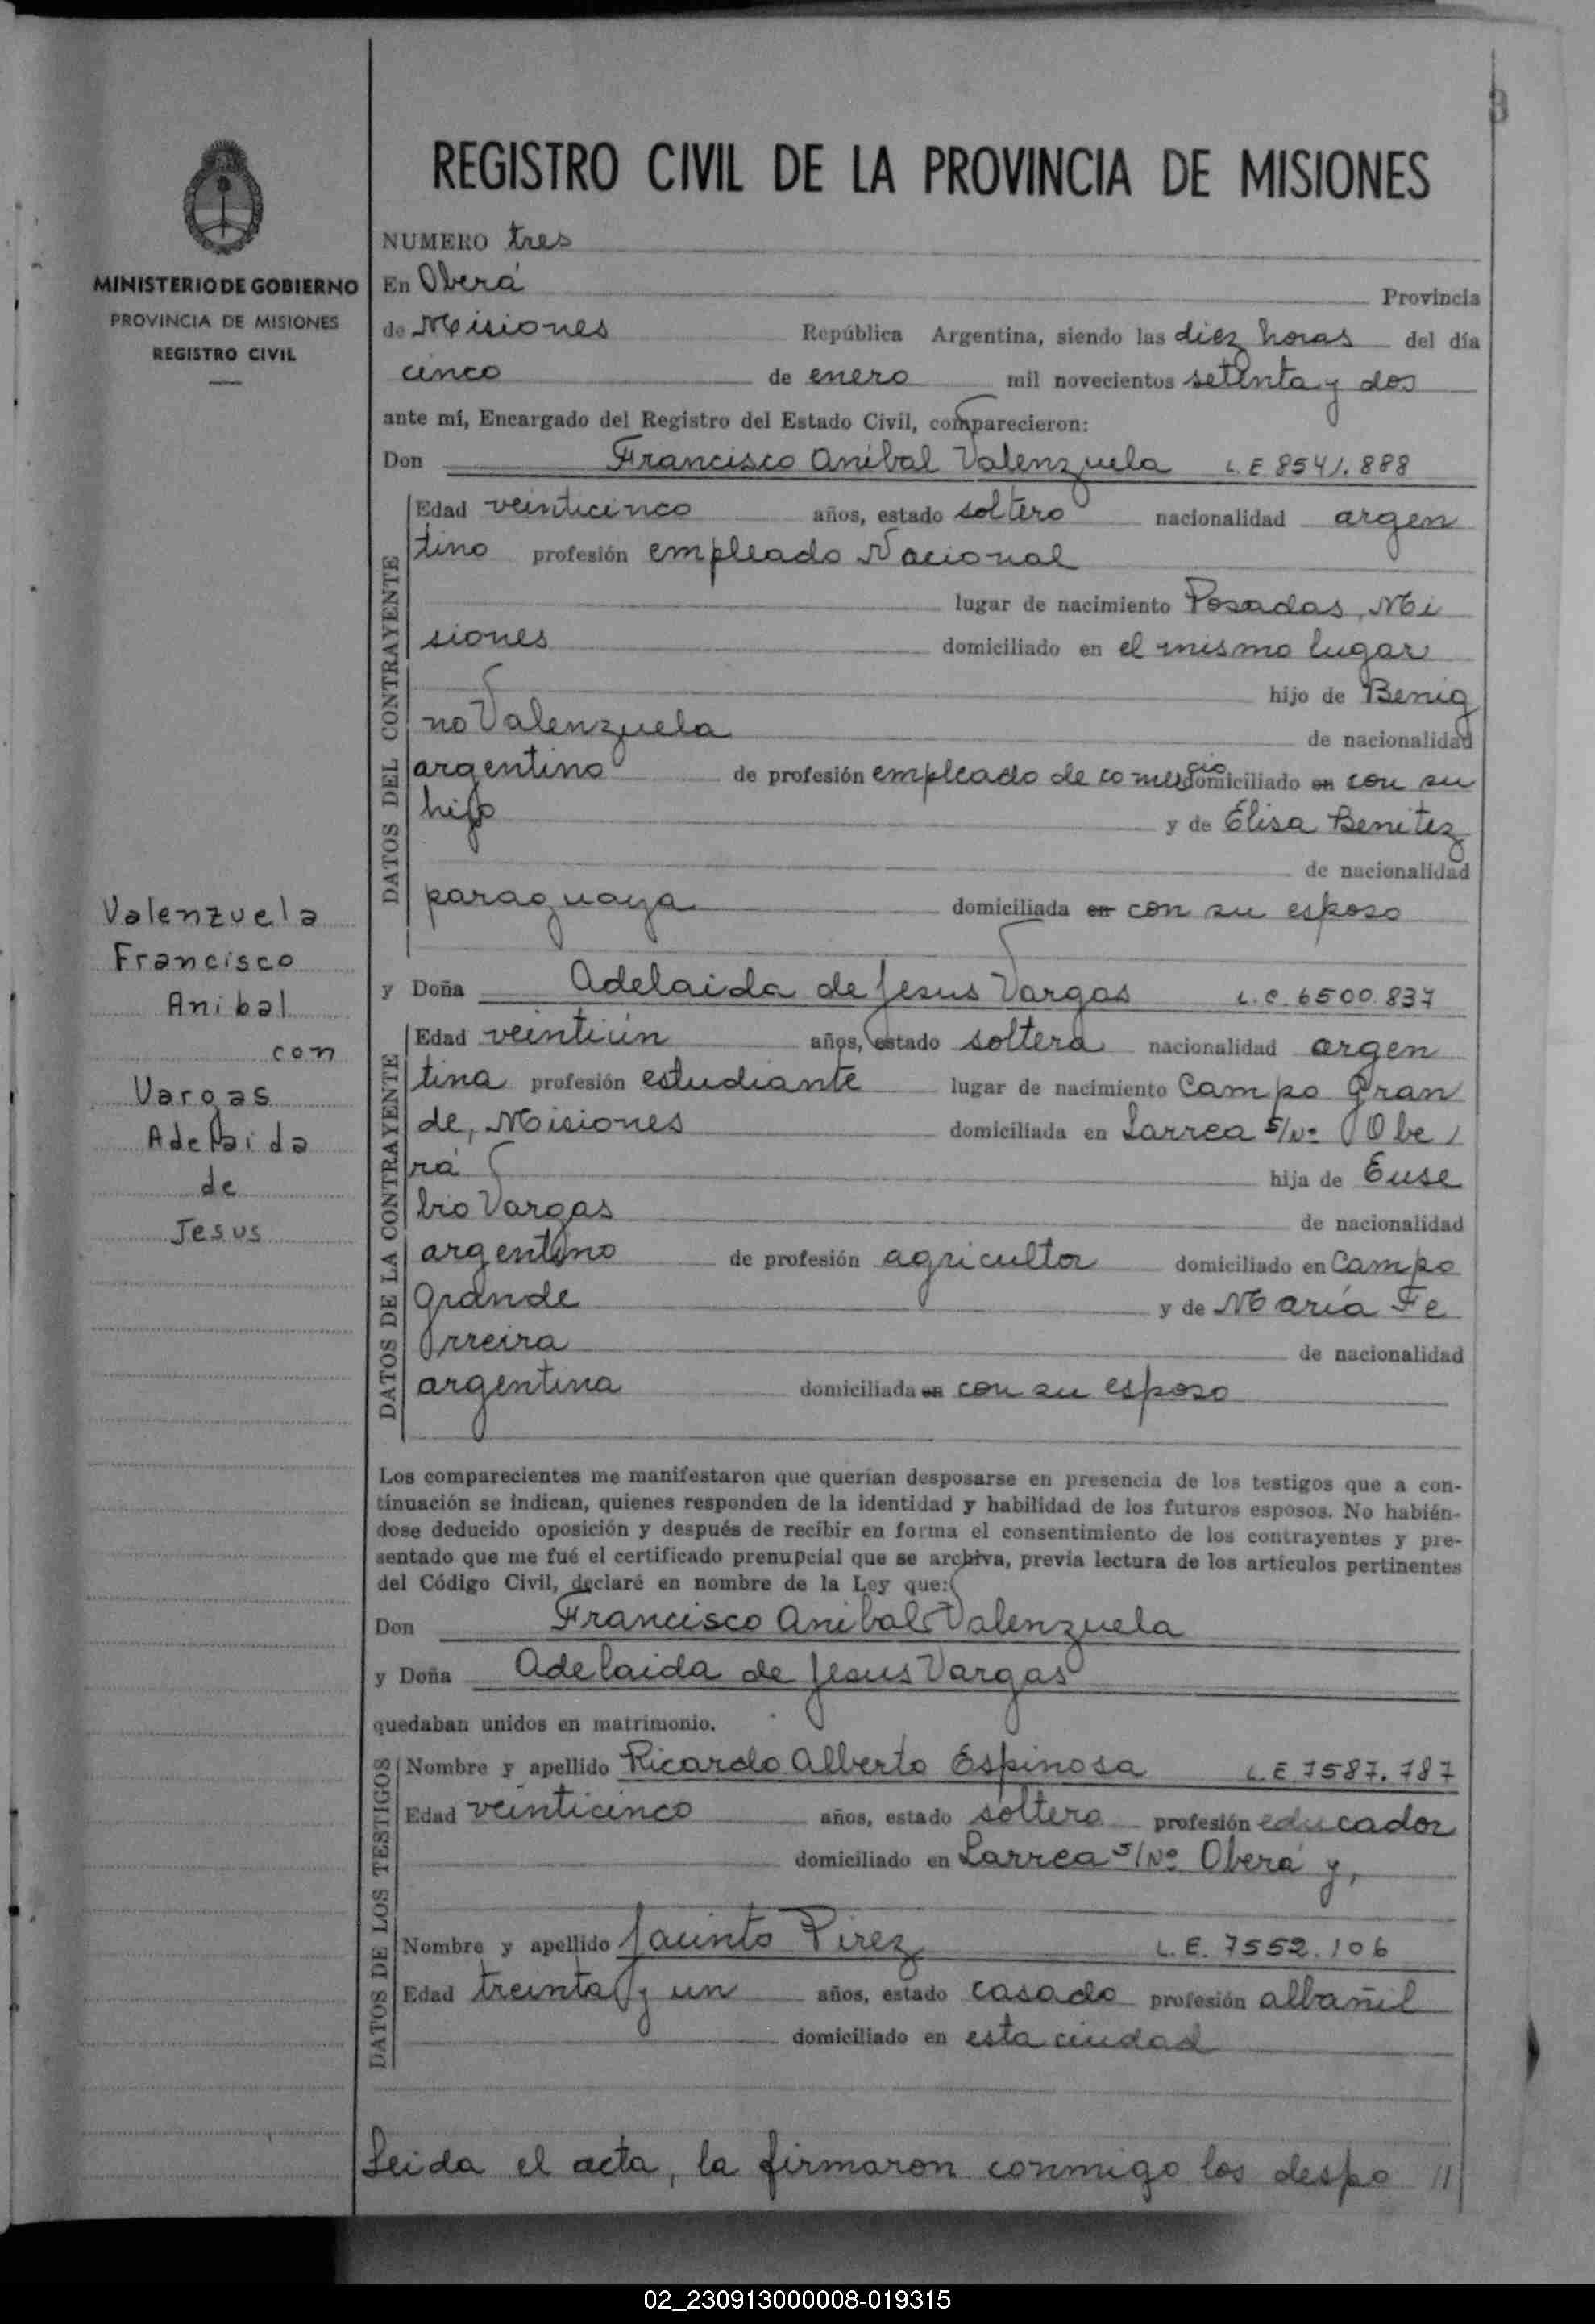 3
REGISTRO CIVIL DE LA PROVINCIA DE MISIONES
MINISTERIO DE GOBIERNO
PROVINCIA DE MISIONES
REGISTRO CIVIL
Valenzuela
Francisco
Anibal
con
Vargas
Adelaida
de
Jesus
NUMERO tres
En Oberá Provincia
de Misiones República Argentina, siendo las diez horas del día
cinco de enero mil novecientos setenta y dos
ante mí, Encargado del Registro del Estado Civil, comparecieron:
Don Francisco Anibal Valenzuela L.E. 8541.888
DATOS DEL CONTRAYENTE
Edad veinticinco años, estado soltero nacionalidad argen
tino profesión empleado Nacional
lugar de nacimiento Posadas, Mi
siones domiciliado en el mismo lugar
hijo de Benig
no Valenzuela de nacionalidad
argentino de profesión empleado de comercio domiciliado en con su
hijo y de Elisa Benitez
de nacionalidad
paraguaya domiciliada en con su esposo
y Doña Adelaida de Jesus Vargas L.C. 6500.837
DATOS DE LA CONTRAYENTE
Edad veintiún años, estado soltera nacionalidad argen
tina profesión estudiante lugar de nacimiento Campo Gran
de, Misiones domiciliada en Larrea S/Nº Obe
rá hija de Euse
bio Vargas de nacionalidad
argentino de profesión agricultor domiciliado en Campo
Grande y de María Fe
rreira de nacionalidad
argentina domiciliada en con su esposo
Los comparecientes me manifestaron que querían desposarse en presencia de los testigos que a con-
tinuación se indican, quienes responden de la identidad y habilidad de los futuros esposos. No habién-
dose deducido oposición y después de recibir en forma el consentimiento de los contrayentes y pre-
sentado que me fué el certificado prenupcial que se archiva, previa lectura de los artículos pertinentes
del Código Civil, declaré en nombre de la Ley que:
Don Francisco Anibal Valenzuela
y Doña Adelaida de Jesus Vargas
quedaban unidos en matrimonio.
DATOS DE LOS TESTIGOS
Nombre y apellido Ricardo Alberto Espinosa L.E. 7587.787
Edad veinticinco años, estado soltero profesión educador
domiciliado en Larrea S/Nº Oberá y,
Nombre y apellido Jacinto Pirez L.E. 7552.106
Edad treinta y un años, estado casado profesión albañil
domiciliado en esta ciudad
Leida el acta, la firmaron conmigo los despo //
02_230913000008-019315